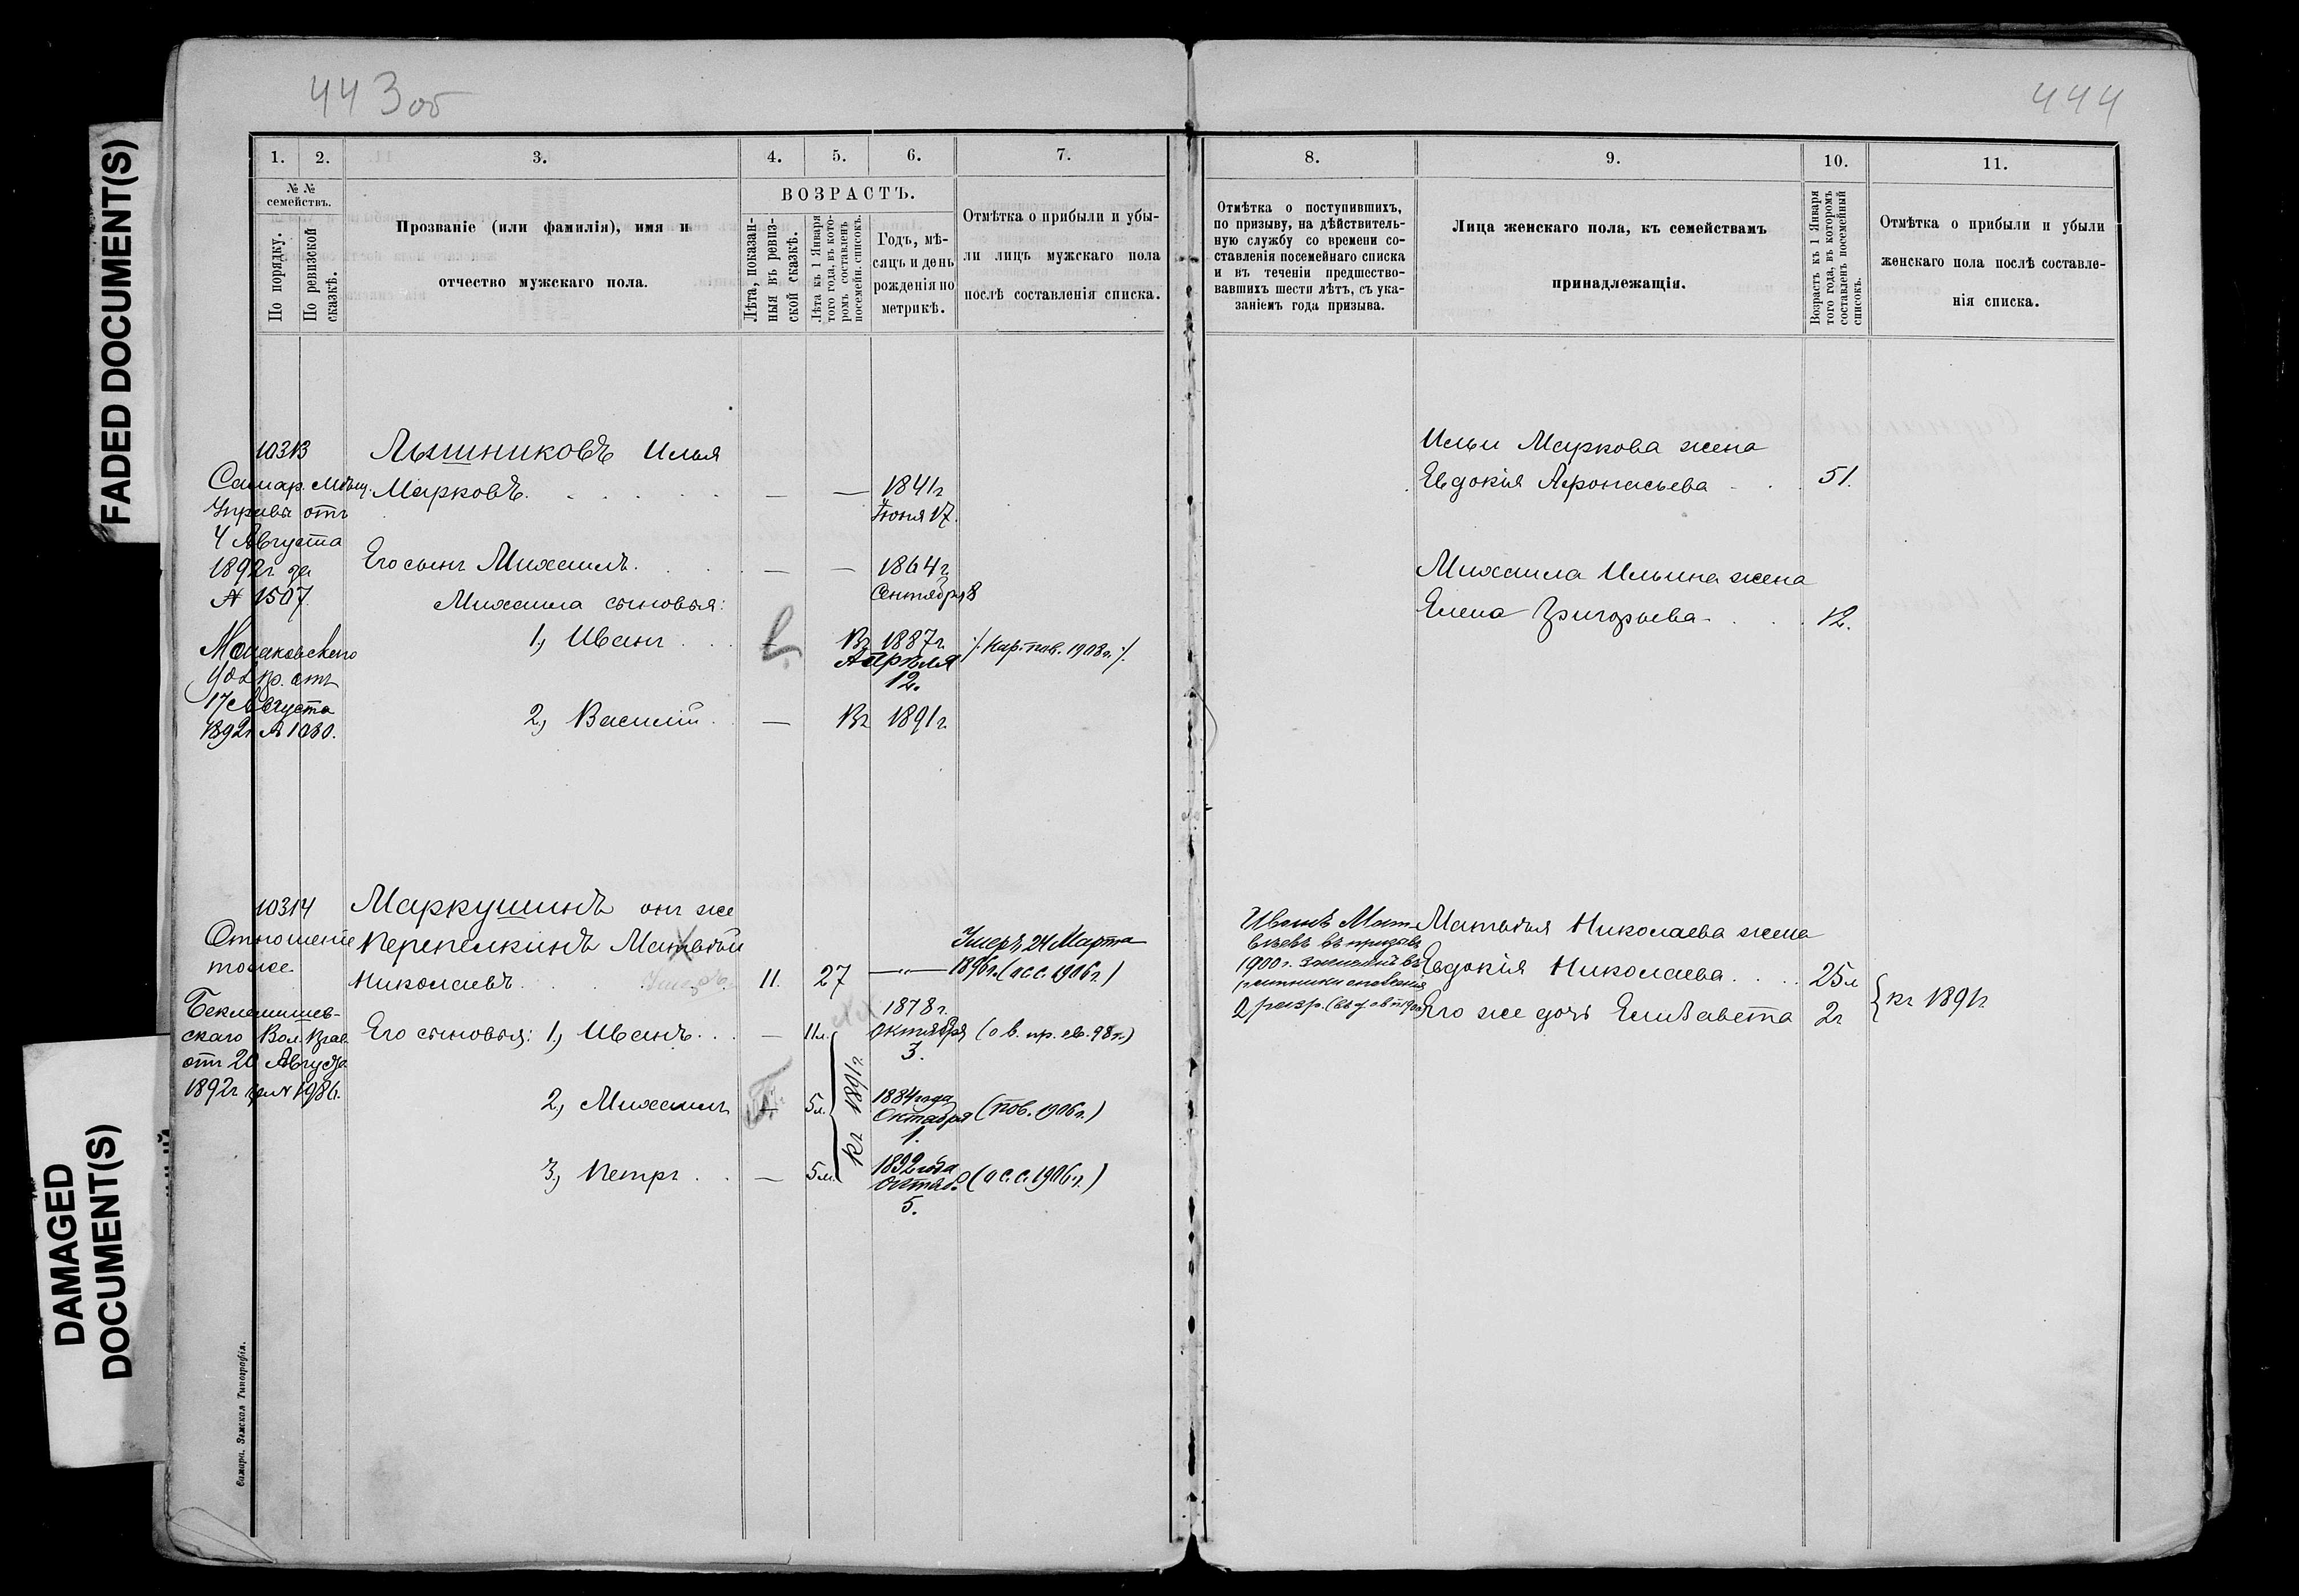 443 об
444
FADED DOCUMENT(S)
DAMAGED
DOCUMENT(S)
1.
2.
3.
4.
5.
6.
7.
№ №
семействъ.
По порядку.
По ревизской
сказкѣ.
Прозваніе (или фамилія), имя и
отчество мужскаго пола.
ВОЗРАСТЪ.
Лѣта, показан-
ныя въ ревиз-
ской сказкѣ.
Лѣта къ 1 Января
того года, въ кото-
ромъ составленъ
посемейн. списокъ.
Годъ, мѣ-
сяцъ и день
рожденія по
метрикѣ.
Отмѣтка о прибыли и убы-
ли лицъ мужскаго пола
послѣ составленія списка.
8.
9.
10.
11.
Отмѣтка о поступившихъ,
по призыву, на дѣйствитель-
ную службу со времени со-
ставленія посемейнаго списка
и въ теченіи предшество-
вавшихъ шести лѣтъ, съ ука-
заніемъ года призыва.
Лица женскаго пола, къ семействамъ
принадлежащія.
Возрастъ къ 1 Января
того года, въ которомъ
составленъ посемейный
списокъ.
Отмѣтка о прибыли и убыли
женскаго пола послѣ составле-
нія списка.
10313
Самар. Мѣщ.
Управы отъ
4 Августа
1892г. за
№ 1507.
17 Августа
1892г. № 1030.
Лышниковъ Илья
Марковъ. — — 1841г.
Іюня 17.
Его сынъ Михаилъ. — — 1864г.
Сентября 8
Михаила сыновья:
1, Иванъ Вг. 1887г.
Апрѣля
12.
/: Кар. пов. 1908г. :/
2, Василій — Вг. 1891г.
Ильи Маркова жена
Евдокія Афонасьева 51.
Михаила Ильина жена
Елена Григорьева 12.
10314
Отношеніе
тоже.
Беклемишев-
скаго Вол. Прав.
отъ 20 Августа
1892г. за № 1986.
Маркушинъ онъ же
Перепелкинъ Матвѣй
Николаевъ. 11. 27 —„—
Умеръ 24 Марта
1896г. (ос. с. 1906г.)
Его сыновья: 1, Иванъ. — 11л.
1878г.
Октября
3.
(о в. пр. св. 98г.)
2, Михаилъ 5л.
1884 года
Октября
1.
(пов. 1906г.)
3, Петръ — 5м.
1892 года
Октяб.
5.
(ос. с. 1906г.)
къ 1891г.
Иванъ Мат-
вѣевъ въ призывъ
1900г. зачисленъ въ
ратники ополченія
2 разр.
Матвѣя Николаева жена
Евдокія Николаева 25л
Его же дочь Елизавета 2г
къ 1891г
Самара. Земская Типографія.